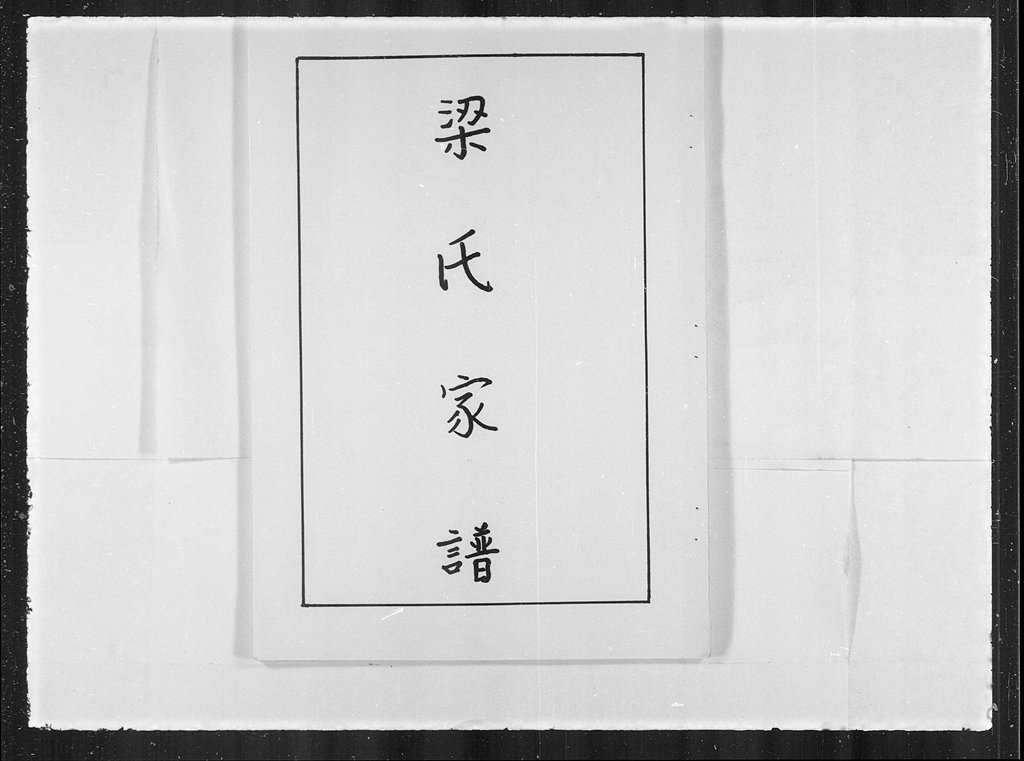 梁氏家譜